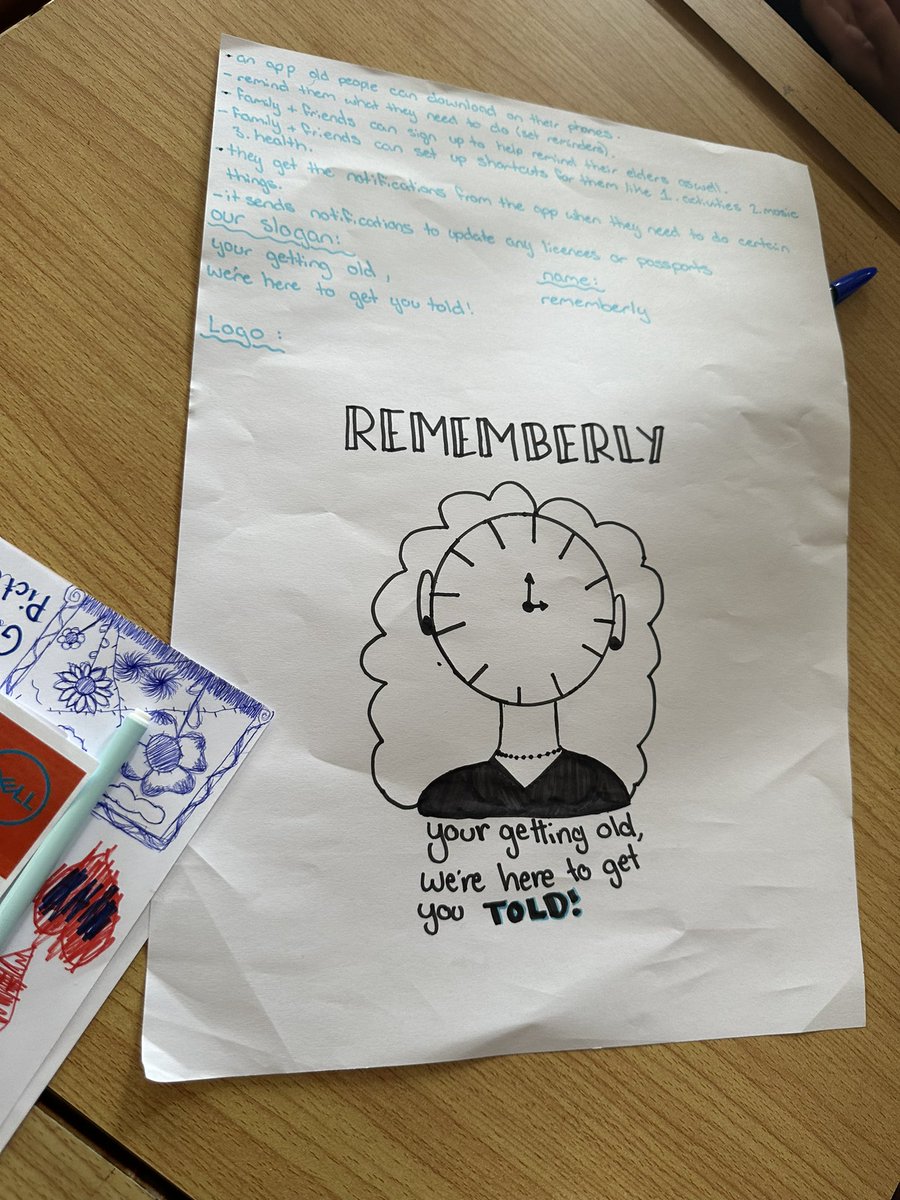 - an app old people can download on their phones.
- remind them what they need to do (set reminders).
- family + friends can sign up to help remind their elders aswell.
- family + friends can set up shortcuts for them like 1. activities 2. music
3. health.
- they get the notifications from the app when they need to do certain
things.
- it sends notifications to update any licences or passports
our slogan:
your getting old,
we're here to get you told!
name:
rememberly
Logo :
REMEMBERLY
your getting old,
we're here to get
you TOLD!
DELL